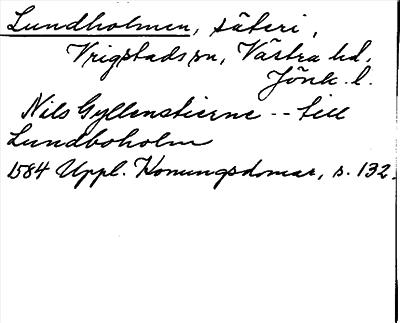 Lundholmen, säteri,
Vrigstads sn, Västra hd,
Jönk. l.
Nils Gyllenstierne -- till
Lundboholm
1584 Uppl. Konungsdomar, s. 132.